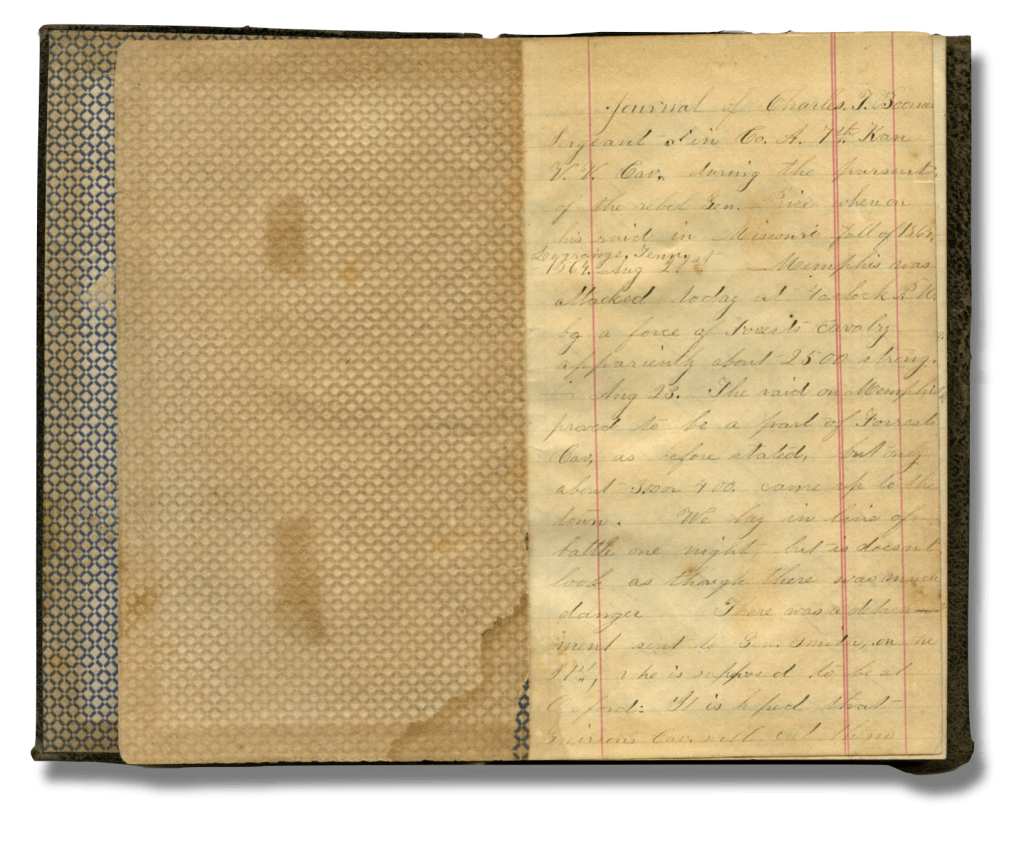 Journal of Charles T.
Sergeant in Co. A. 7th Kan
V. V. Cav, during the pursuit
of the rebel Gen. Price when on
his raid in Missouri fall of 1864,
Lagrange, Tenn,
1864. Aug 21st Memphis was
attacked today at
by a force of cavalry
about 2500 strong.
Aug 23. The raid on Memphis
proved to be a part of Forrests
Cav, as before stated, but only
about 300 or 400 came up to the
town. We lay in line of
battle one night but is doesnt
look as though there was much
danger There was a detach-
ment sent to Gen. Smith, on the
who is supposed to be at
Oxford: It is hoped that
Griersons Cav. will cut them